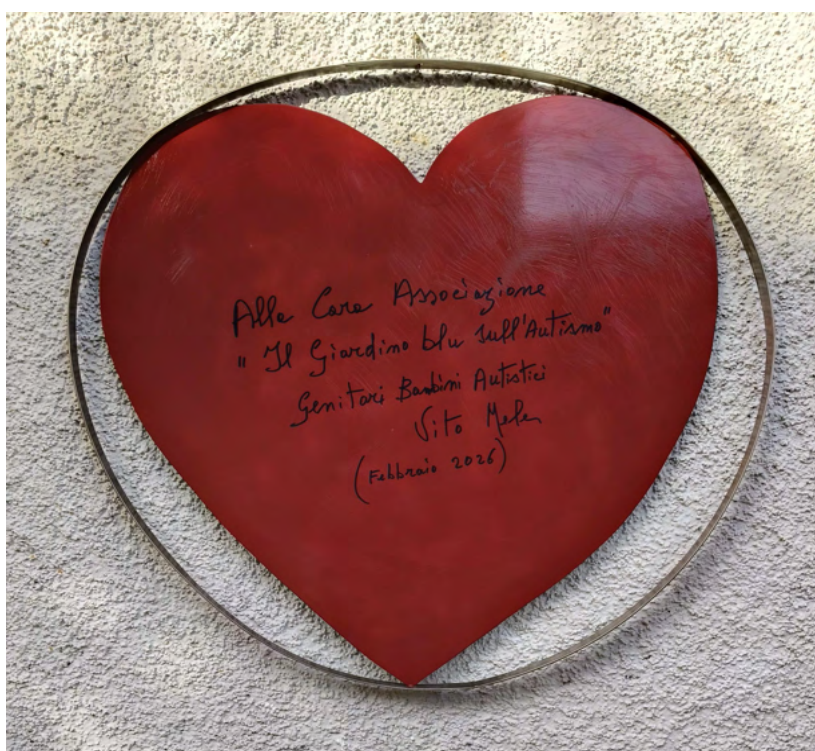 Alla Cara Associazione
" Il Giardino blu sull'Autismo"
Genitori Bambini Autistici
Vito Mele
(Febbraio 2026)